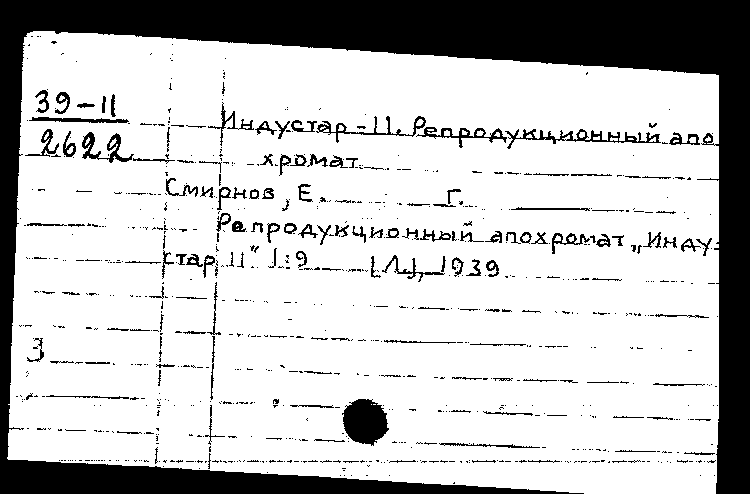 39-11
2622
Индустар-11. Репродукционный апо
хромат
Смирнов, Е. Г.
Репродукционный апохромат „Инду=
стар 11" 1:9 [Л.], 1939
3